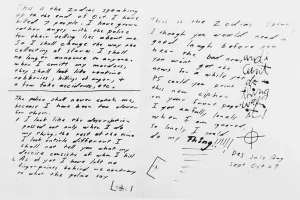 This is the Zodiac speaking
up to the end of Oct I have
killed 7 people. I have grown
rather angry with the police
for their telling lies about me.
So I shall change the way the
collecting of slaves. I shall
no longer announce to anyone.
when I comitt my murders,
they shall look like routine
robberies, killings of anger, &
a few fake accidents, etc.
The police shall never catch me,
because I have been too clever
for them.
I look like the description
passed out only when I do
my thing, the rest of the time
I look entirle different. I
shall not tell you what my
descise consists of when I kill
As of yet I have left no
fingerprints behind me contrary
to what the police say
This is the Zodiac speaking
I though you would need a
good laugh before you
hear the bad news
you won't get the
news for a while yet
PS could you print
this new cipher
on your front page?
I get awfully lonely
when I am ignored,
So lonely I could
do my Thing!!!!!!
and
I
can't
do a
thing
with it!
Des July Aug
Sept Oct = 7